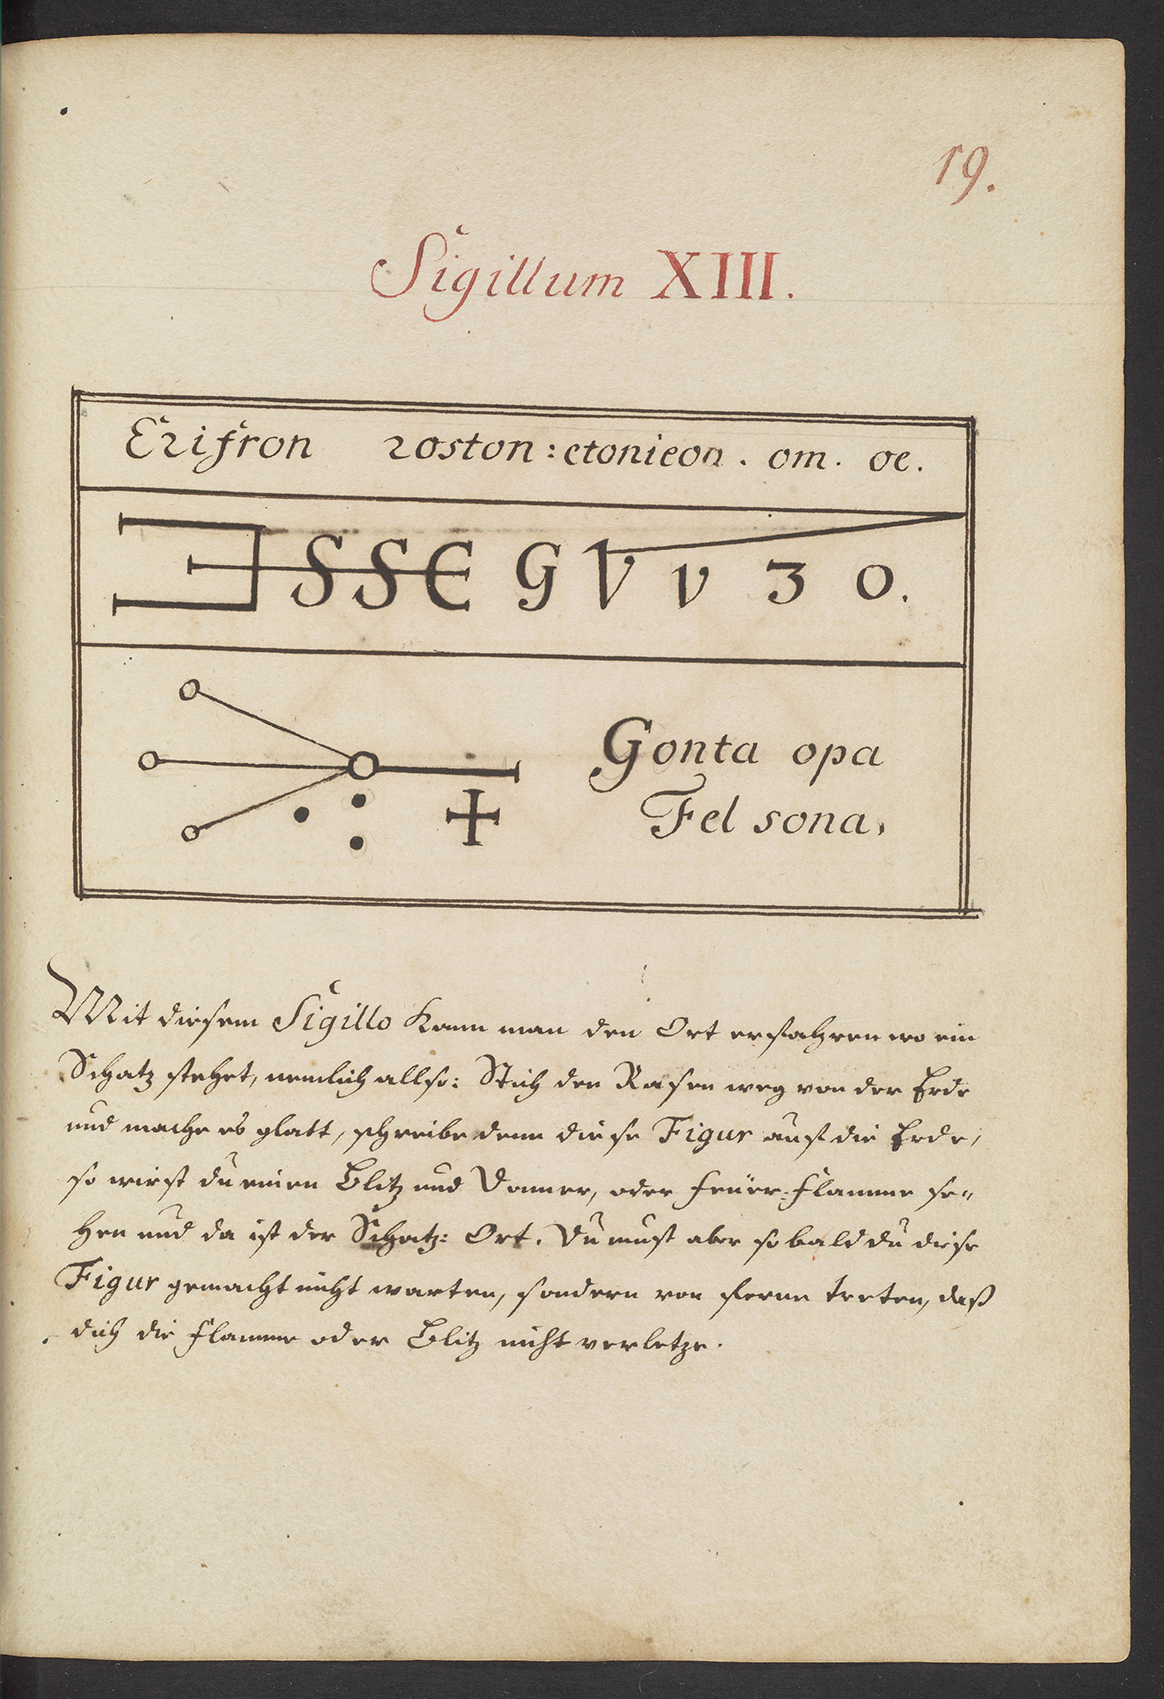 19.
Sigillum XIII.
Erifron roston: ctonieon. om. oe.
E S S E G V v 3 0.
Gonta opa
Fel sona,
Mit diesem Sigillo kann man den Ort erfahren wo ein
Schatz stehet, nemlich allso: Stich den Rasen weg von der Erde
und mache es glatt, schreibe denn diese Figur auf die Erde,
so wirst du einen Blitz und Donner, oder feüer-flamme se-
hen und da ist der Schatz: Ort. Du must aber so bald du diese
Figur gemacht nicht warten, sondern von ferne treten, daß
dich die flamme oder Blitz nicht verletze.